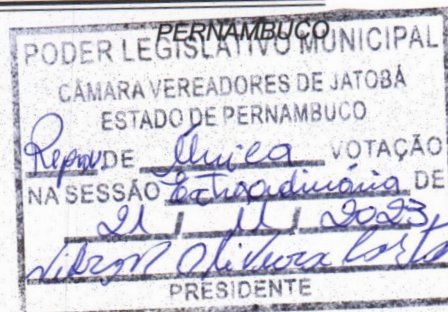 PERNAMBUCO
PODER LEGISLATIVO MUNICIPAL
CÂMARA VEREADORES DE JATOBÁ
ESTADO DE PERNAMBUCO
DE Única VOTAÇÃO
NA SESSÃO Extraordinária DE
21 / 11 / 2023
Oliveira
PRESIDENTE